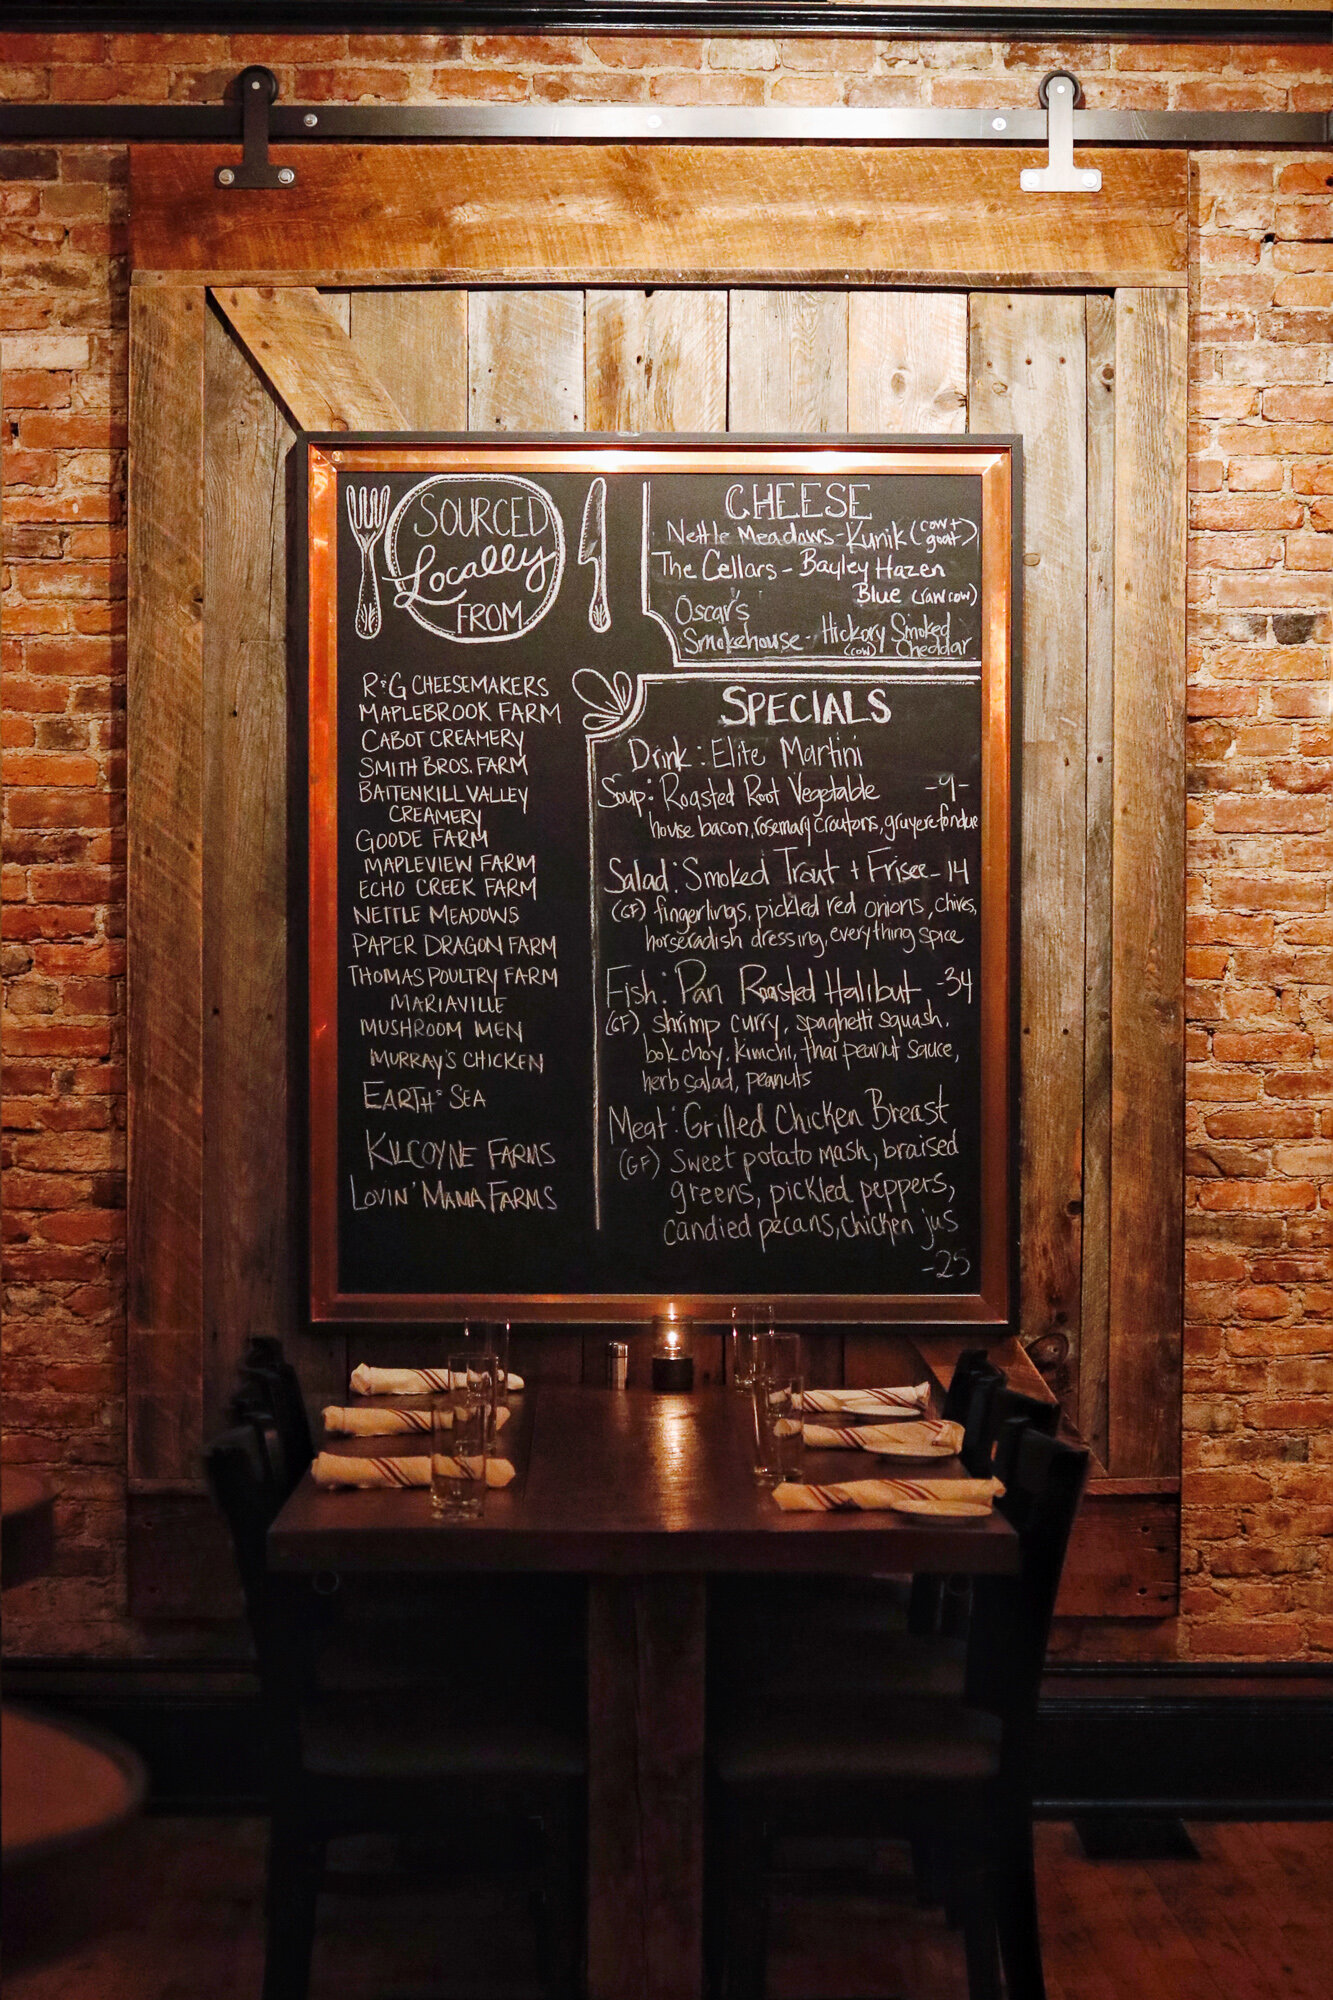 SOURCED
Locally
FROM
R&G CHEESEMAKERS
MAPLEBROOK FARM
CABOT CREAMERY
SMITH BROS. FARM
BATTENKILL VALLEY
CREAMERY
GOODE FARM
MAPLEVIEW FARM
ECHO CREEK FARM
NETTLE MEADOWS
PAPER DRAGON FARM
THOMAS POULTRY FARM
MARIAVILLE
MUSHROOM MEN
MURRAY'S CHICKEN
EARTH & SEA
KILCOYNE FARMS
LOVIN' MAMA FARMS
CHEESE
Nettle Meadows - Kunik (cow + goat)
The Cellars - Bayley Hazen
Blue (raw cow)
Oscar's
Smokehouse - Hickory Smoked
(cow) Cheddar
SPECIALS
Drink: Elite Martini
Soup: Roasted Root Vegetable -9-
house bacon, rosemary croutons, gruyere fondue
Salad: Smoked Trout + Frisee - 14
(GF) fingerlings, pickled red onions, chives,
horseradish dressing, everything spice
Fish: Pan Roasted Halibut -34
(GF) shrimp curry, spaghetti squash,
bok choy, kimchi, thai peanut sauce,
herb salad, peanuts
Meat: Grilled Chicken Breast
(GF) sweet potato mash, braised
greens, pickled peppers,
candied pecans, chicken jus
-25